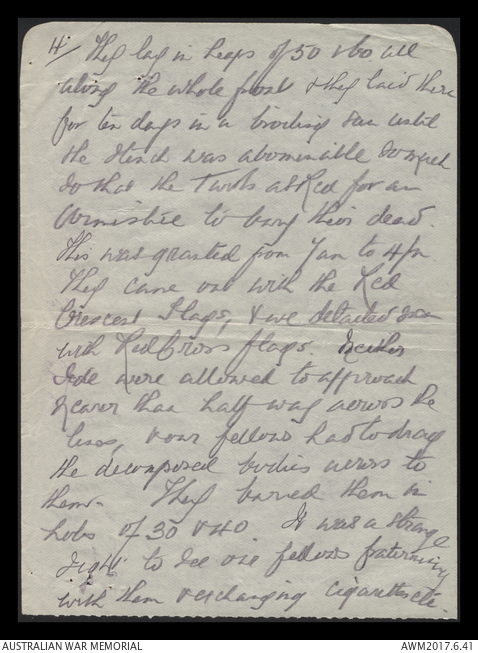 4/ They lay in heaps of 50 & 60 all
along the whole front & they laid there
for ten days in a broiling sun until
the stench was abominable so much
so that the Turks asked for an
Armistice to bury their dead.
This was granted from 7am to 4pm
They came out with the Red
Crescent Flags, & we detailed men
with Red Cross flags. Neither
side were allowed to approach
nearer than half way across the
lines, & our fellows had to drag
the decomposed bodies across to
them. They buried them in
hols of 30 & 40 It was a strange
sight to see our fellows fraternising
with them & exchanging cigarettes etc.
AUSTRALIAN WAR MEMORIAL
AWM2017.6.41